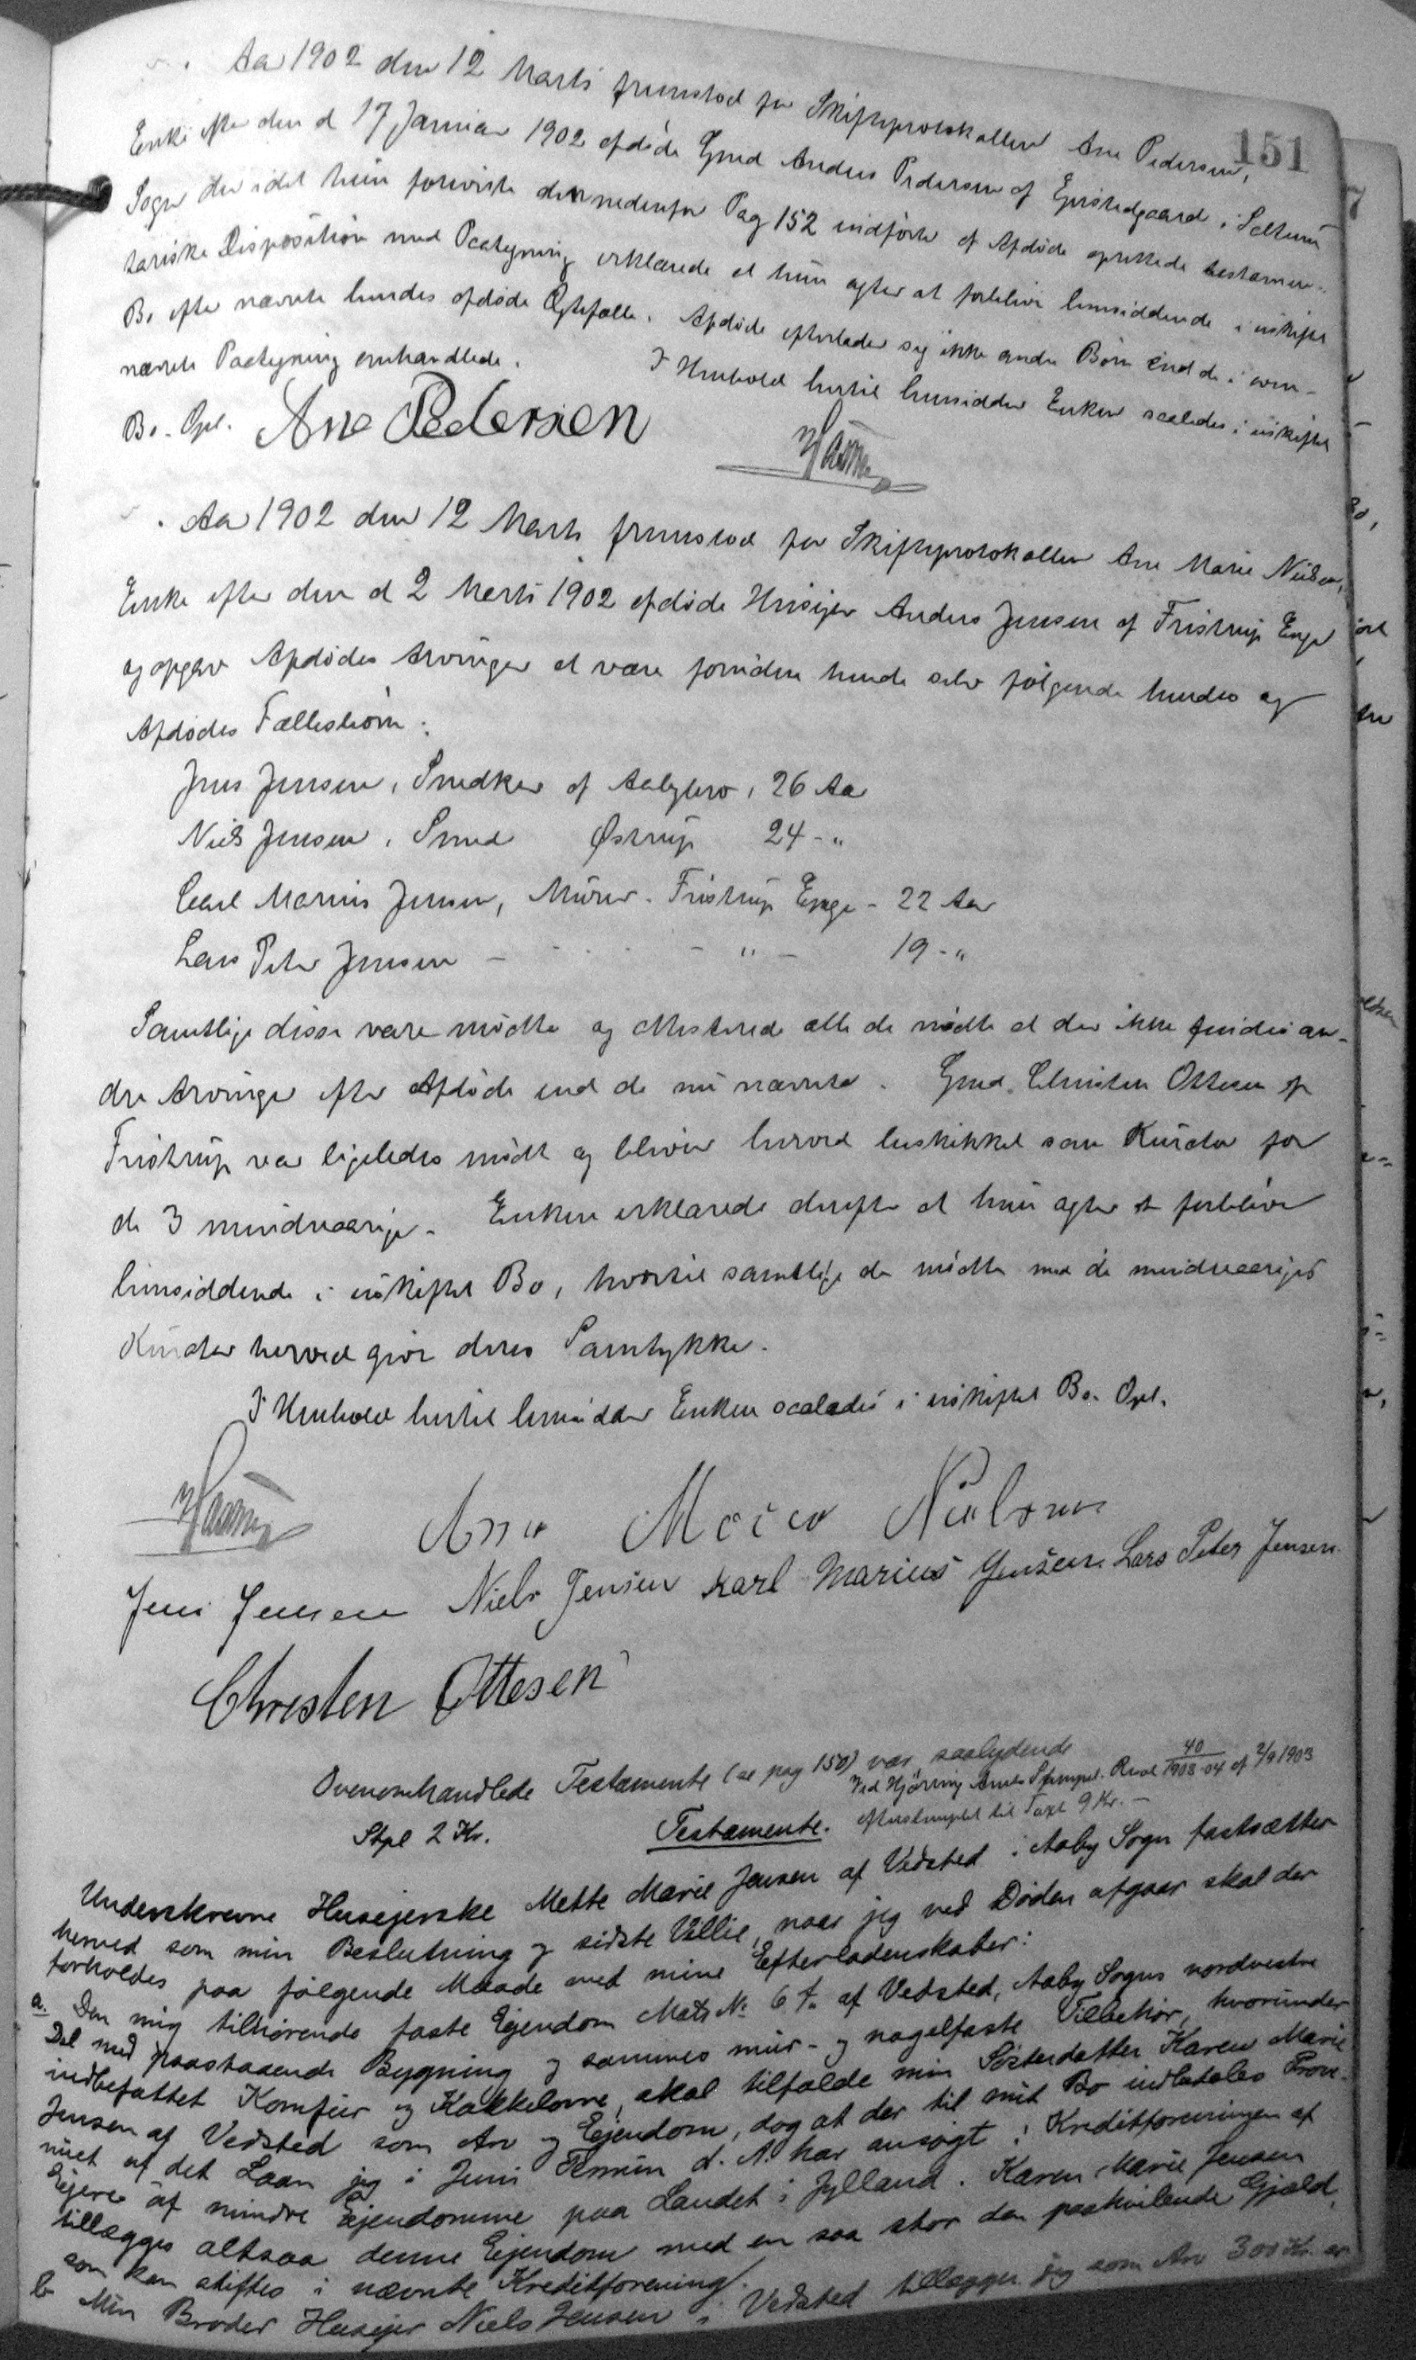 151
Aar 1902 den 12 Marts fremstod for Skifteprotokollen Ane Pedersen,
Enke efter den d 17 Januar 1902 afdøde Gmd Anders Pedersen af Gjøstedgaard i Saltum
Sogn der idet hun foreviste den nedenfor Pag 152 indførte af Afdøde oprettede testamen-
tariske Disposition med Paategning erklærede at hun agter at forblive hensiddende i uskiftet
Bo efter nævnte hendes afdøde Ægtefælle. Afdøde efterlader sig ikke andre Børn end de i oven-
nævnte Paategning omhandlede. I Henhold hertil hensidder Enken saaledes i uskiftet
Bo. Opl. Ane Pedersen
Aar 1902 den 12 Marts fremstod for Skifteprotokollen Ane Marie Nielsen,
Enke efter den d 2 Marts 1902 afdøde Husejer Anders Jensen af Fristrup Enge
og opgav Afdødes Arvinger at være foruden hende selv følgende hendes og
Afdødes Fællesbørn:
Jens Jensen, Snedker af Aabybro, 26 Aar
Niels Jensen, Smed Østrup 24 - "
Carl Marius Jensen, Murer - Fristrup Enge - 22 Aar
Lars Peter Jensen - " - 19 - "
Samtlige disse vare mødte og attesterede alle de mødte at der ikke findes an-
dre Arvinger efter Afdøde end de nu nævnte. Gmd. Christen Ottesen af
Fristrup var ligeledes mødt og bliver herved beskikket som Kurator for
de 3 mindreaarige. Enken erklærede derefter at hun agter at forblive
hensiddende i uskiftet Bo, hvortil samtlige de mødte med de mindreaariges
Kurator herved give deres Samtykke.
I Henhold hertil hensidder Enken saaledes i uskiftet Bo. Opl.
Ane Marie Nielsen
Jens Jensen Niels Jensen Karl Marius Jensen. Lars Peter Jensen.
Christen Ottesen
Ovenomhandlede Testamente (se pag 150) var saalydende
Ved Hjørring Amts Stempel. Resol 40/1903-04 af 2/9 1903
Stpl 2 Kr. Testamente. efterstemplet til Taxt 9 Kr. -
Underskrevne Husejerske Mette Marie Jensen af Vedsted i Aaby Sogn fastsætter
herved som min Beslutning og sidste Villie, naar jeg ved Døden afgaar skal der
forholdes paa følgende Maade med mine Efterladenskaber:
a. Den mig tilhørende faste Ejendom Matr № 6 f. af Vedsted, Aaby Sogns nordvestre
Del med paastaaende Bygning og sammes mur- og nagelfaste Tilbehør, hvorunder
indbefattet Komfur og Kakkelovne, skal tilfalde min Søsterdatter Karen Marie
Jensen af Vedsted som Arv og Ejendom, dog at der til mit Bo indbetales Prove-
nuet af det Laan jeg i Juni Termin d. A. har ansøgt i Kreditforeningen af
Ejere af mindre Ejendomme paa Landet i Jylland. Karen Marie Jensen
tillægges altsaa denne Ejendom med en saa stor den paahvilende Gjæld,
som kan stiftes i nævnte Kreditforening.
b Min Broder Husejer Niels Jensen i Vedsted tillægger jeg som Arv 300 Kr. er